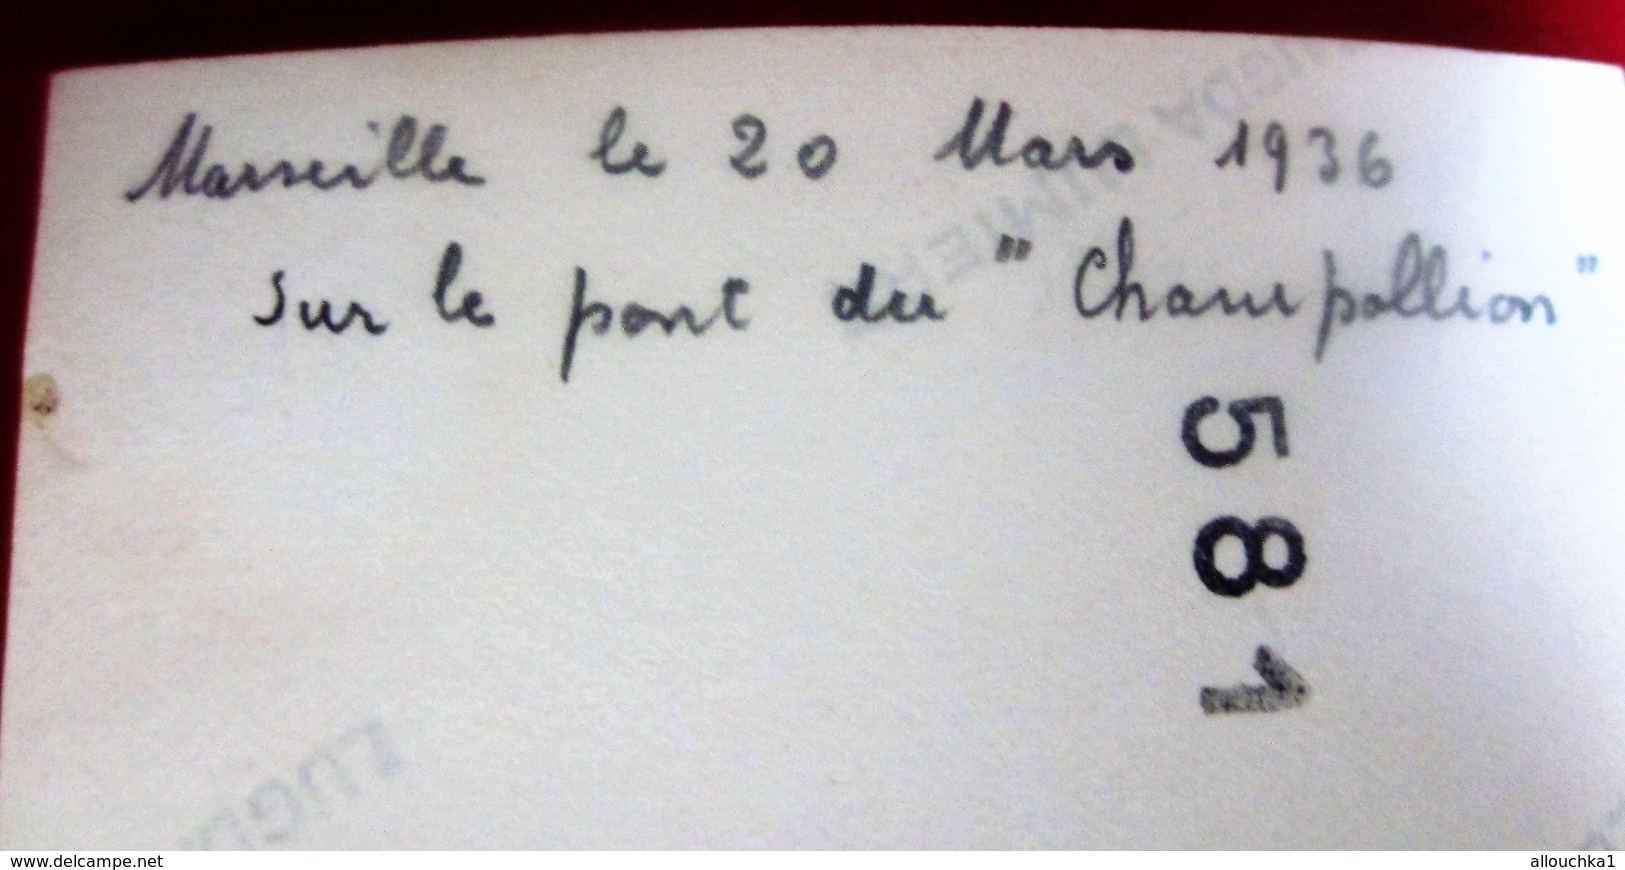 Marseille le 20 Mars 1936
sur le pont du " Champollion "
581
www.delcampe.net
allouchka1